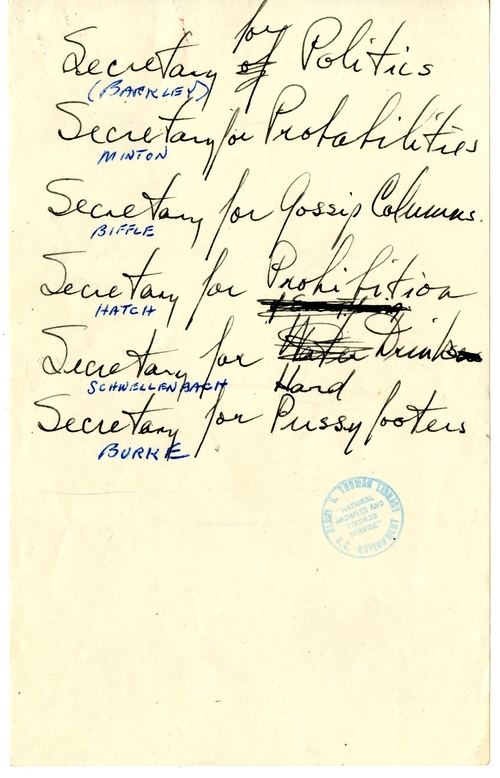 for
Secretary of Politics
(BARKLEY)
Secretary for Probabilities
MINTON
Secretary for Gossip Columns.
BIFFLE
Secretary for Prohibition
HATCH
Secretary for Water Drink
SCHWELLENBACH Hard
Secretary for Pussyfooters
BURKE
HARRY S. TRUMAN LIBRARY INDEPENDENCE
"NATIONAL
ARCHIVES AND
RECORDS
SERVICE"